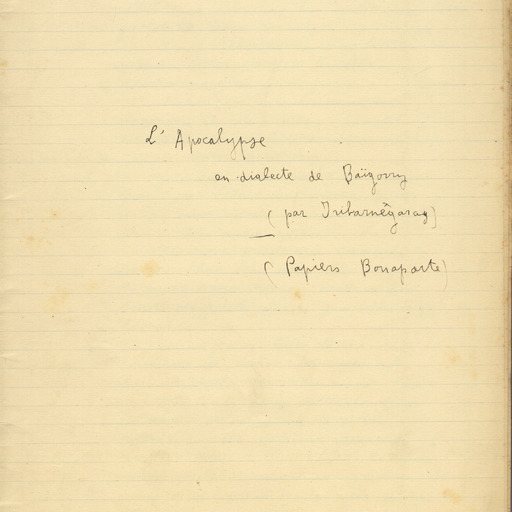 L'Apocalypse
en dialecte de Baïgorry
(par Iribarnégaray)
(Papiers Bonaparte)